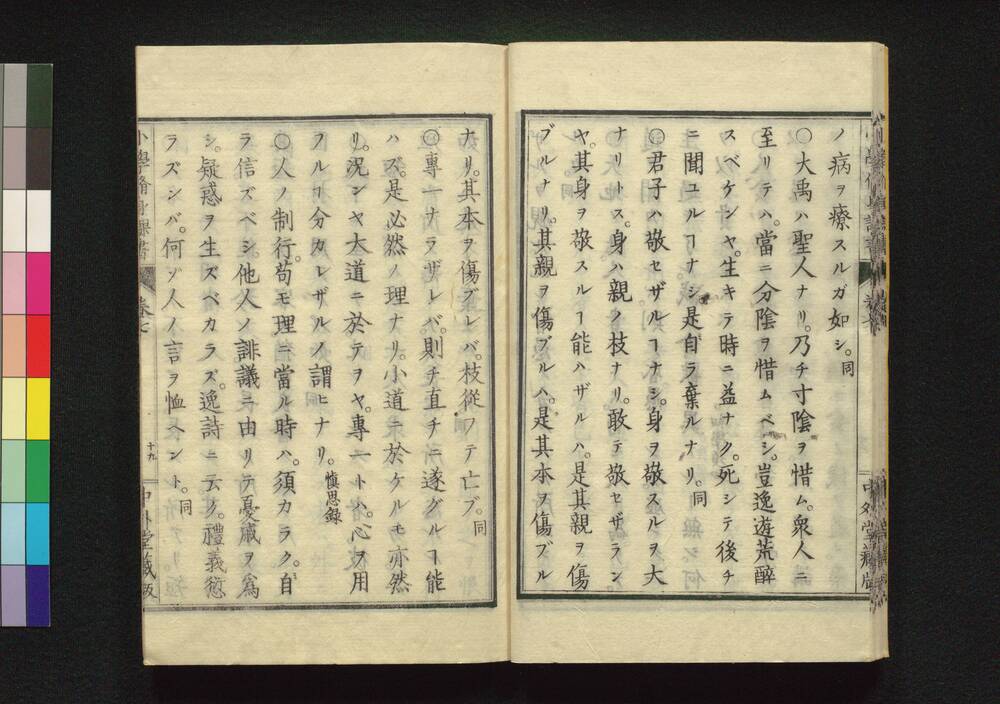 ノ病ヲ療スルガ如シ。同
〇大禹ハ聖人ナリ。乃チ寸陰ヲ惜ム。衆人ニ
至リテハ。當ニ分陰ヲ惜ムベシ。豈逸遊荒醉
スベケンヤ。生キテ時ニ益ナク。死シテ後チ
ニ聞ユルヿナシ。是自ラ棄ルナリ。同
◎君子ハ敬セザルヿナシ。身ヲ敬スルヲ大
ナリトス。身ハ親ノ枝ナリ。敢テ敬セザラン
ヤ。其身ヲ敬スルヿ能ハザルハ。是其親ヲ傷
ブルナリ。其親ヲ傷ブルハ。是其本ヲ傷ブル
ナリ。其本ヲ傷ブレバ。枝從フテ亡ブ。同
◎專一ナラザレバ。則チ直チニ遂グルヿ能
ハズ。是必然ノ理ナリ。小道ニ於ケルモ亦然
リ。況ンヤ大道ニ於テヲヤ。專一トハ。心ヲ用
フルヿ分カレザルノ謂ヒナリ。愼思録
〇人ノ制行。苟モ理ニ當ル時ハ。須カラク。自
ラ信ズベシ。他人ノ誹議ニ由リテ憂慼ヲ爲
シ。疑惑ヲ生ズベカラズ。逸詩ニ云ク。禮義愆
ラズンバ。何ゾ人ノ言ヲ恤ヘント。同
小學脩身課書
卷七
十九
中外堂藏版